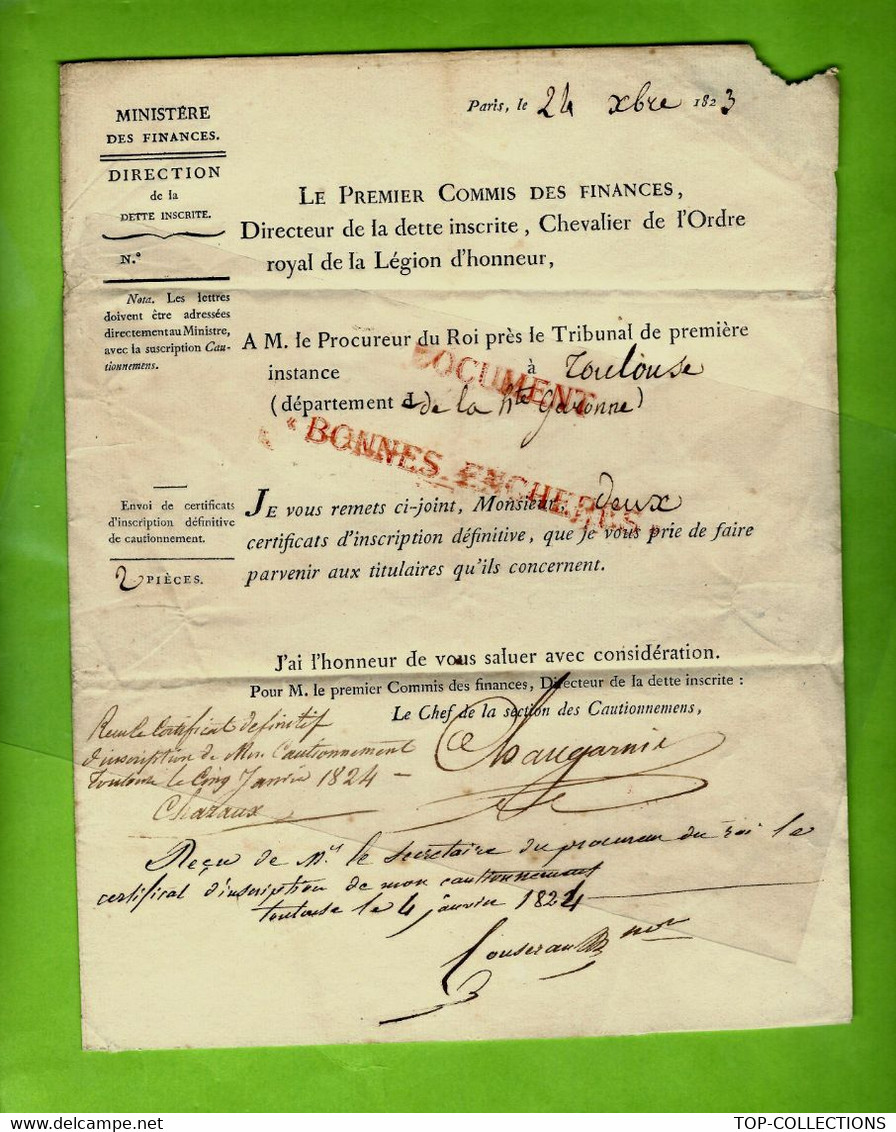 Paris, le 24 xbre 1823
MINISTÈRE
DES FINANCES.
DIRECTION
de la
DETTE INSCRITE.
N.°
Nota. Les lettres
doivent être adressées
directement au Ministre,
avec la suscription Cau-
tionnemens.
LE PREMIER COMMIS DES FINANCES,
Directeur de la dette inscrite, Chevalier de l'Ordre
royal de la Légion d'honneur,
A M. le Procureur du Roi près le Tribunal de première
instance à Toulouse
(département de la hte Garonne)
DOCUMENT
"BONNES ENCHERES"
Envoi de certificats
d'inscription définitive
de cautionnement.
2 PIÈCES.
JE vous remets ci-joint, Monsieur, deux
certificats d'inscription définitive, que je vous prie de faire
parvenir aux titulaires qu'ils concernent.
J'ai l'honneur de vous saluer avec considération.
Pour M. le premier Commis des finances, Directeur de la dette inscrite :
Le Chef de la section des Cautionnemens,
Changarnié
certificat definitif
d'inscription de Mon Cautionnement
Toulouse le Cinq Janvier 1824
Chazaux
Reçu de Mr le secretaire du procureur du roi le
certificat d'inscription de mon cautionnement
toulouse le 4 janvier 1824
TOP-COLLECTIONS